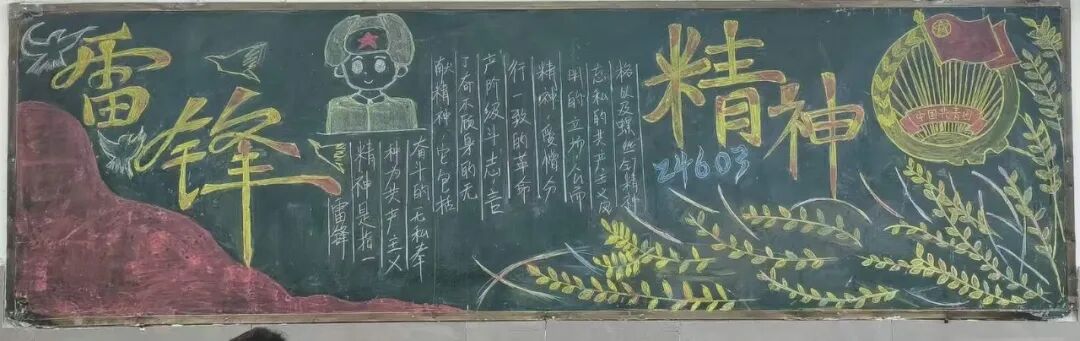 雷锋
精神
雷锋
精神是指一
种为共产主义
奋斗的无私奉
献精神,它包括
了奋不顾身的无
产阶级斗志,言
行一致的革命
精神,爱憎分
明的立场,公而
忘私的共产主义风
格以及螺丝钉精神
24603
中国共青团